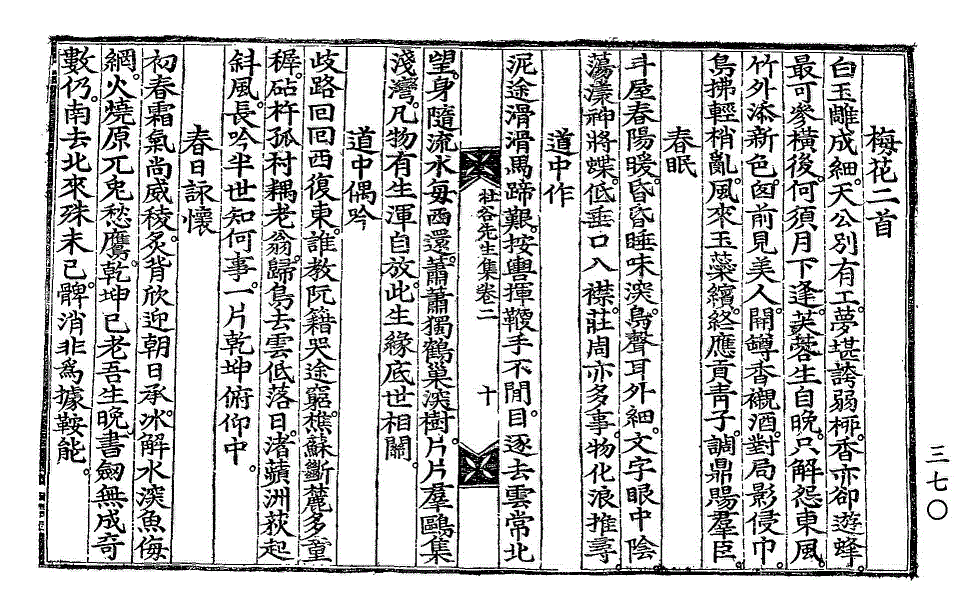 梅花二首
白玉雕成細。天公別有工。夢堪誇弱柳。香亦卻遊蜂。
最可參橫後。何須月下逢。芙蓉生自晚。只解怨東風。
竹外添新色。窗前見美人。開罇香襯酒。對局影侵巾。
鳥拂輕梢亂。風來玉蘂繽。終應貢靑子。調鼎賜羣臣。
春眠
斗屋春陽暖。昏昏睡味深。鳥聲耳外細。文字眼中陰。
蕩漾神將蝶。低垂口入襟。莊周亦多事。物化浪推尋。
道中作
泥途滑滑馬蹄艱。按轡揮鞭手不閒。目逐去雲常北
杜谷先生集卷二 十
望。身隨流水每西還。蕭蕭獨鶴巢深樹。片片羣鷗集
淺灣。凡物有生渾自放。此生緣底世相關。
道中偶吟
歧路回回西復東。誰敎阮籍哭途窮。樵蘇斷麓多童
穉。砧杵孤村耦老翁。歸鳥去雲低落日。渚蘋洲荻起
斜風。長吟半世知何事。一片乾坤俯仰中。
春日詠懷
初春霜氣尚威稜。炙背欣迎朝日承。冰解水深魚侮
網。火燒原兀兎愁鷹。乾坤已老吾生晩。書劒無成奇
數仍。南去北來殊未已。髀消非爲據鞍能。
三七〇